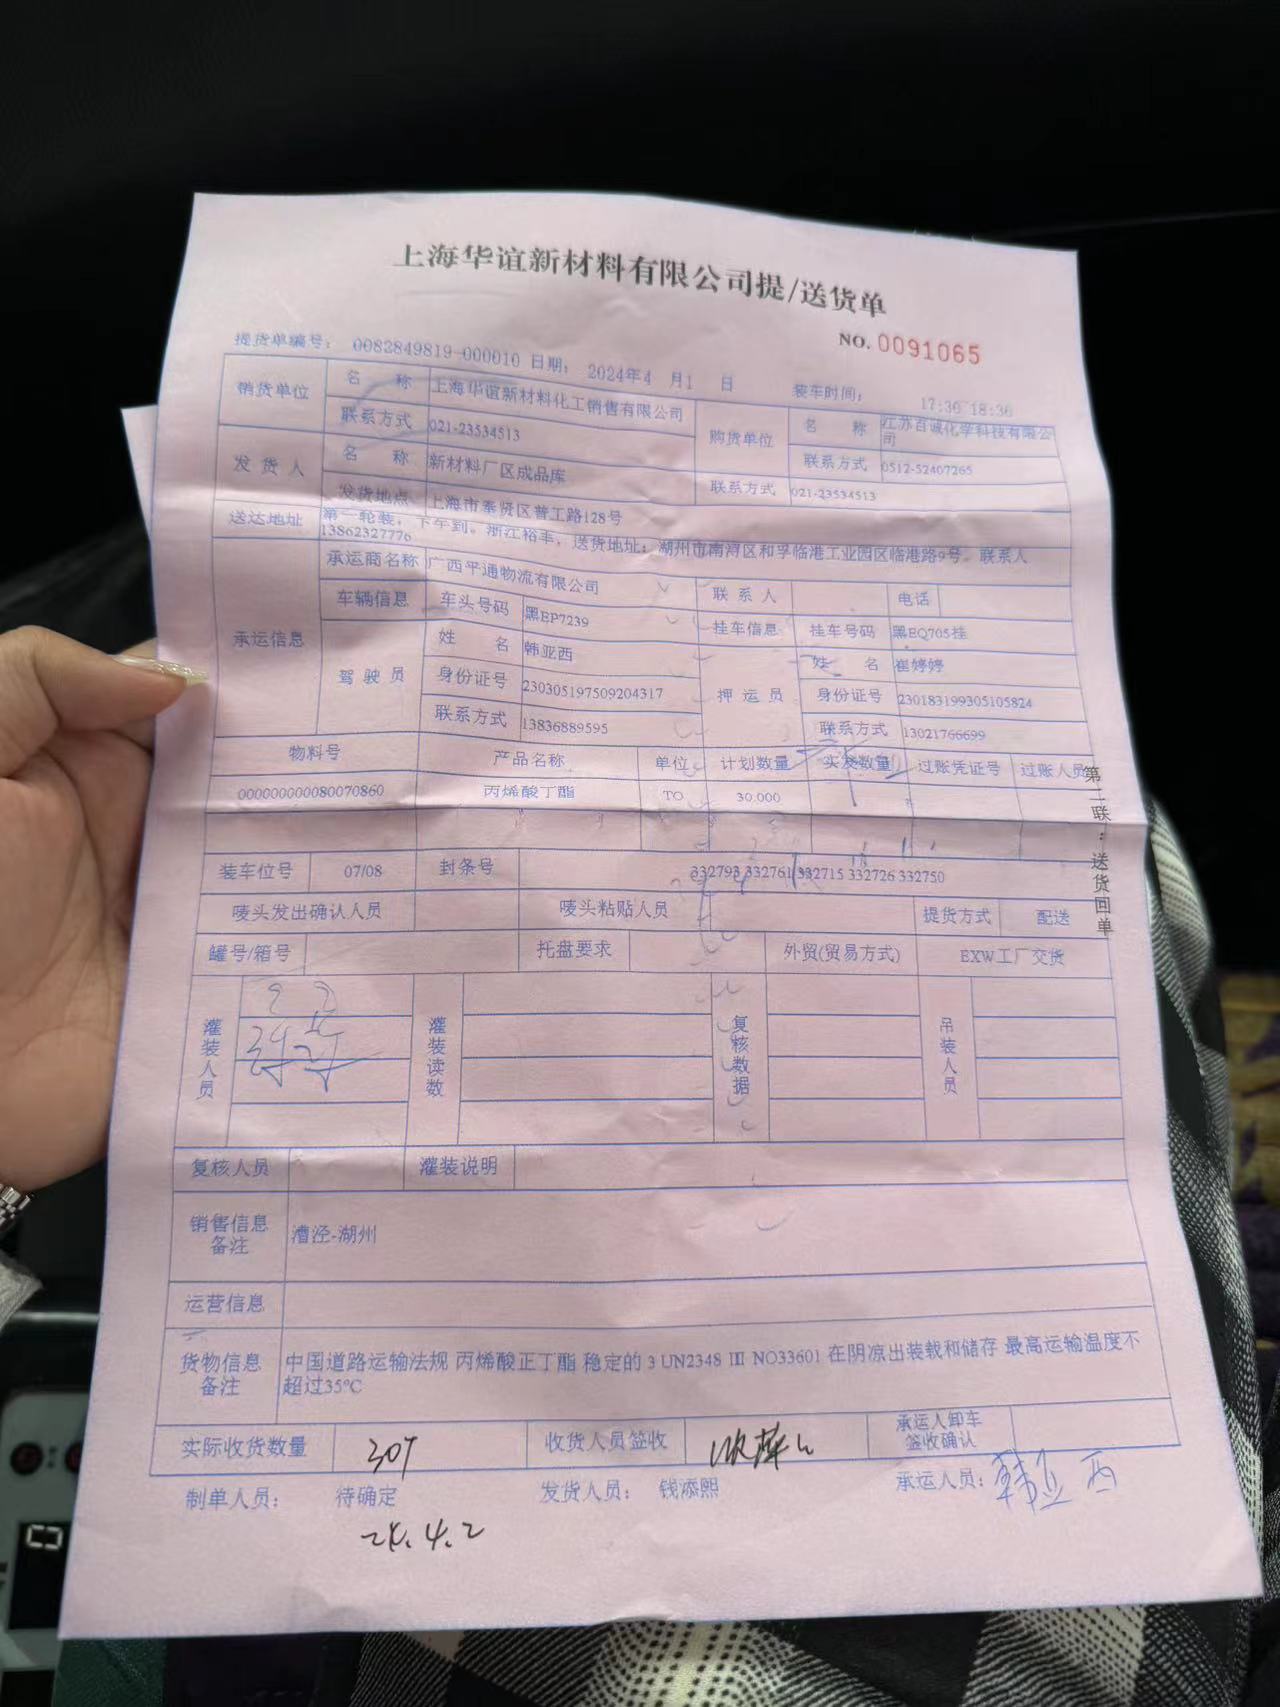 上海华谊新材料有限公司提/送货单
NO. 0091065
提货单编号： 0082849819-000010 日期： 2024年4 月1 日 装车时间： 17:36 18:36
销货单位 名 称 上海华谊新材料化工销售有限公司 购货单位 名 称 江苏百诚化学科技有限公司
联系方式 021-23534513 联系方式 0512-52407265
发 货 人 名 称 新材料厂区成品库 联系方式 021-23534513
发货地点 上海市奉贤区普工路128号
送达地址 第一轮装，下午到。浙江裕丰，送货地址：湖州市南浔区和孚临港工业园区临港路9号。联系人
13862327776
承运信息 承运商名称 广西平通物流有限公司 联 系 人 电话
车辆信息 车头号码 黑EP7239 挂车信息 挂车号码 黑EQ705挂
驾 驶 员 姓 名 韩亚西 押 运 员 姓 名 崔婷婷
身份证号 230305197509204317 身份证号 230183199305105824
联系方式 13836889595 联系方式 13021766699
物料号 产品名称 单位 计划数量 实发数量 过账凭证号 过账人员
000000000080070860 丙烯酸丁酯 TO 30.000
第二联：送货回单
装车位号 07/08 封条号 332793 332761 332715 332726 332750
唛头发出确认人员 唛头粘贴人员 提货方式 配送
罐号/箱号 托盘要求 外贸(贸易方式) EXW工厂交货
灌装人员 灌装读数 复核数据 吊装人员
复核人员 灌装说明
销售信息备注 漕泾-湖州
运营信息
货物信息备注 中国道路运输法规 丙烯酸正丁酯 稳定的 3 UN2348 III NO33601 在阴凉出装载和储存 最高运输温度不
超过35℃
实际收货数量 30T 收货人员签收 承运人卸车签收确认
制单人员： 待确定 发货人员： 钱添熙 承运人员： 韩亚西
24.4.2